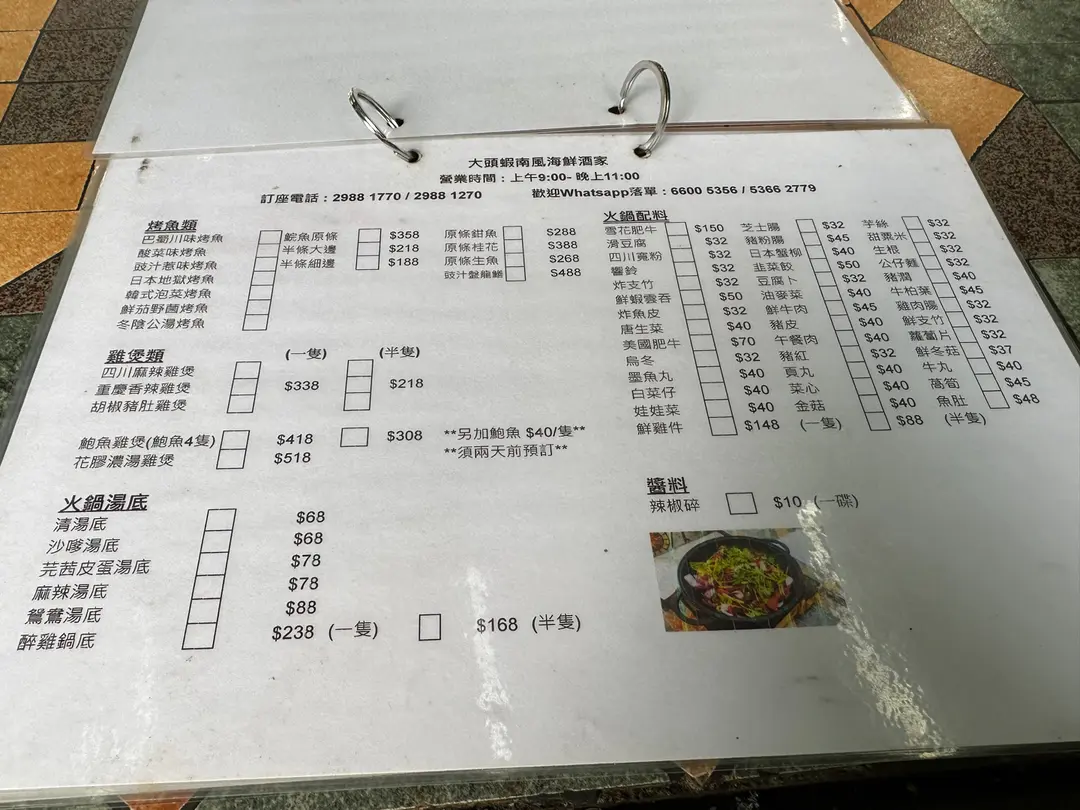 大頭蝦南風海鮮酒家
營業時間：上午9:00- 晚上11:00
訂座電話：2988 1770 / 2988 1270 歡迎Whatsapp落單：6600 5356 / 5366 2779
烤魚類
巴蜀川味烤魚 鯇魚原條 $358 原條鉗魚 $288
酸菜味烤魚 半條大邊 $218 原條桂花 $388
豉汁惹味烤魚 半條細邊 $188 原條生魚 $268
日本地獄烤魚 豉汁盤龍鱔 $488
韓式泡菜烤魚
鮮茄野菌烤魚
冬陰公湯烤魚
雞煲類 (一隻) (半隻)
四川麻辣雞煲
重慶香辣雞煲 $338 $218
胡椒豬肚雞煲
鮑魚雞煲(鮑魚4隻) $418 $308 **另加鮑魚 $40/隻**
花膠濃湯雞煲 $518 **須兩天前預訂**
火鍋湯底
清湯底 $68
沙嗲湯底 $68
芫茜皮蛋湯底 $78
麻辣湯底 $78
鴛鴦湯底 $88
醉雞鍋底 $238 (一隻) $168 (半隻)
火鍋配料
雪花肥牛 $150 芝士腸 $32 芋絲 $32
滑豆腐 $32 豬粉腸 $45 甜粟米 $32
四川寬粉 $32 日本蟹柳 $40 生根 $32
響鈴 $32 韮菜餃 $50 公仔麵 $32
炸支竹 $32 豆腐卜 $32 豬潤 $40
鮮蝦雲吞 $50 油麥菜 $40 牛柏葉 $45
炸魚皮 $32 鮮牛肉 $45 雞肉腸 $32
唐生菜 $40 豬皮 $40 鮮支竹 $32
美國肥牛 $70 午餐肉 $40 蘿蔔片 $32
烏冬 $32 豬紅 $32 鮮冬菇 $37
墨魚丸 $40 貢丸 $40 牛丸 $40
白菜仔 $40 菜心 $40 萵筍 $45
娃娃菜 $40 金菇 $40 魚肚 $48
鮮雞件 $148 (一隻) $88 (半隻)
醬料
辣椒碎 $10 (一碟)